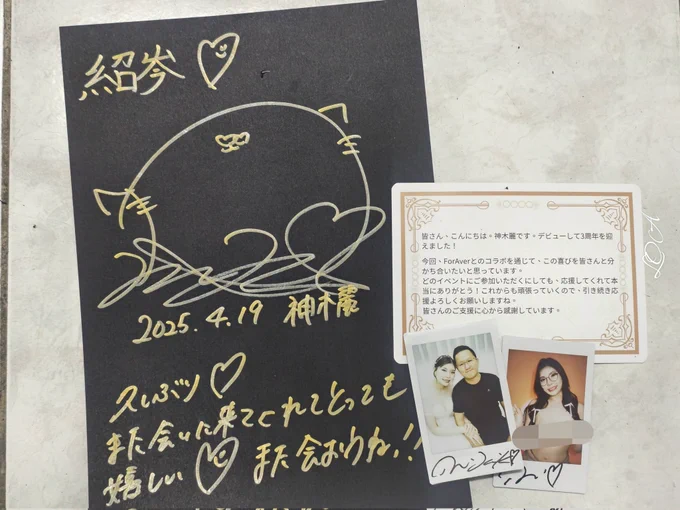 紹岑
2025.4.19 神木麗
久しぶり
また会いに来てくれてとっても
嬉しい また会おうね!!
皆さん、こんにちは。神木麗です。デビューして3周年を迎
えました!
今回、ForAverとのコラボを通じて、この喜びを皆さんと分
かち合いたいと思っています。
どのイベントにご参加いただくにしても、応援してくれて本
当にありがとう!これからも頑張っていくので、引き続き応
援よろしくお願いしますね。
皆さんのご支援に心から感謝しています。